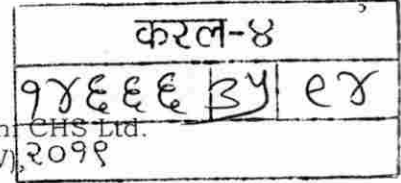 करल-४
१४६६६ ३५ ९४
CHS Ltd.
२०१९